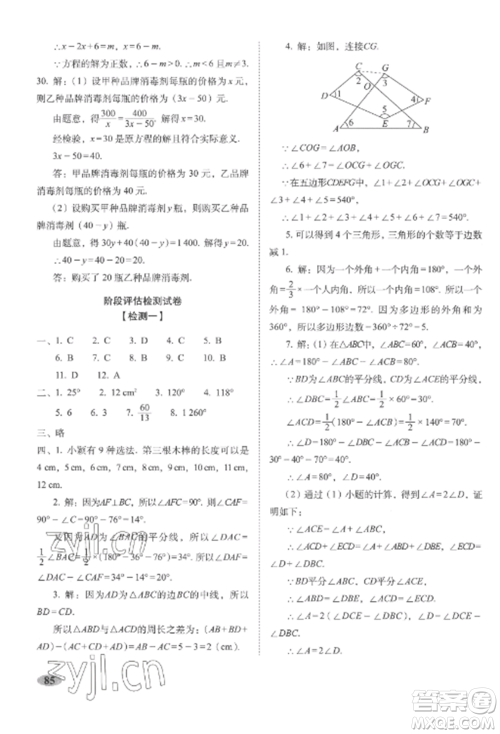 ∴x－2x＋6＝m，∴x＝6－m.
∵方程的解为正数，∴6－m＞0.∴m＜6且m≠3.
30. 解：（1）设甲种品牌消毒剂每瓶的价格为x元，
则乙种品牌消毒剂每瓶的价格为（3x－50）元.
由题意，得300/x＝400/(3x－50)，解得x＝30.
经检验，x＝30是原方程的解且符合实际意义.
3x－50＝40.
答：甲品牌消毒剂每瓶的价格为30元，乙品牌消
毒剂每瓶的价格为40元.
（2）设购买甲种品牌消毒剂y瓶，则购买乙种品
牌消毒剂（40－y）瓶.
由题意，得30y＋40（40－y）＝1400，解得y＝20.
∴40－y＝40－20＝20.
答：购买了20瓶乙品牌消毒剂.
阶段评估检测试卷
【检测一】
一、1. C 2. C 3. B 4. C 5. A
6. B 7. B 8. C 9. D 10. C
11. D 12. A
二、1. 25° 2. 12 cm² 3. 120° 4. 118°
5. 6 6. 3 7. 60/13 8. 1 260°
三、略
四、1. 小颖有9种选法. 第三根木棒的长度可以是
4 cm，5 cm，6 cm，7 cm，8 cm，9 cm，10 cm，11 cm，
12 cm.
2. 解：因为AF⊥BC，所以∠AFC＝90°，所以∠CAF＝
90°－∠C＝90°－76°＝14°.
又因为AD为△ABC的平分线，所以∠DAC＝
1/2∠BAC＝1/2×（180°－36°－76°）＝34°，所以∠DAF＝
∠DAC－∠CAF＝34°－14°＝20°.
3. 解：因为AD为△ABC的边BC的中线，所以
BD＝CD.
所以△ABD与△ACD的周长之差为：（AB＋AD＋
BD）－（AC＋AD＋CD）＝AB－AC＝5－3＝2（cm）.
85
4. 解：如图，连接CG.
C G 2 3 O D 1 4 F 5 E A 6 7 B
∵∠COG＝∠AOB，
∴∠6＋∠7＝∠OCG＋∠OGC.
∵在五边形CDEFG中，∠1＋∠2＋∠OCG＋∠OGC＋
∠3＋∠4＋∠5＝540°，
∴∠1＋∠2＋∠3＋∠4＋∠5＋∠6＋∠7＝540°.
5. 可以得到4个三角形，三角形的个数等于边数
减1.
6. 解：∵一个外角＋一个内角＝180°，一个外角＝
2/3×一个内角，∴一个外角＝72°，一个内角＝108°.
∵360°÷72°＝5，∴多边形的边数为5，内角和为
（5－2）×180°＝540°.
7. 解：（1）∵在△ABC中，∠A＋∠ABC＋∠ACB＝
180°，∴∠A＝180°－∠ABC－∠ACB.
∵BD为∠ABC的平分线，CD为∠ACE的平分线，
∴∠DBC＝1/2∠ABC，
∠ACD＝1/2（180°－∠ACB）＝90°－1/2∠ACB.
∴∠A＝80°.
（2）通过（1）小题的计算，得到∠A＝2∠D，证
明如下：
∵∠ACE＝∠A＋∠ABC，
∴∠A＝∠ACE－∠ABC.
∵BD平分∠ABC，CD平分∠ACE，
∴∠ABC＝2∠DBC，∠ACE＝2∠DCE.
∴∠A＝2∠DCE－2∠DBC.
∵∠D＝∠DCE－∠DBC，
∴∠A＝2∠D.
zyjl.cn
zyjl.cn
答案圈
MXQE.COM